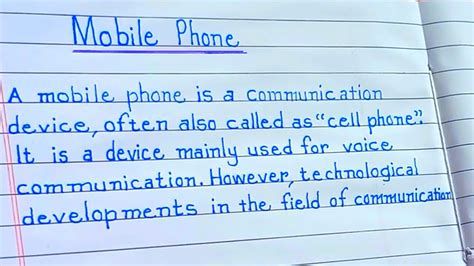 Mobile Phone
A mobile phone is a communication
device, often also called as "cell phone".
It is a device mainly used for voice
communication. However, technological
developments in the field of communication